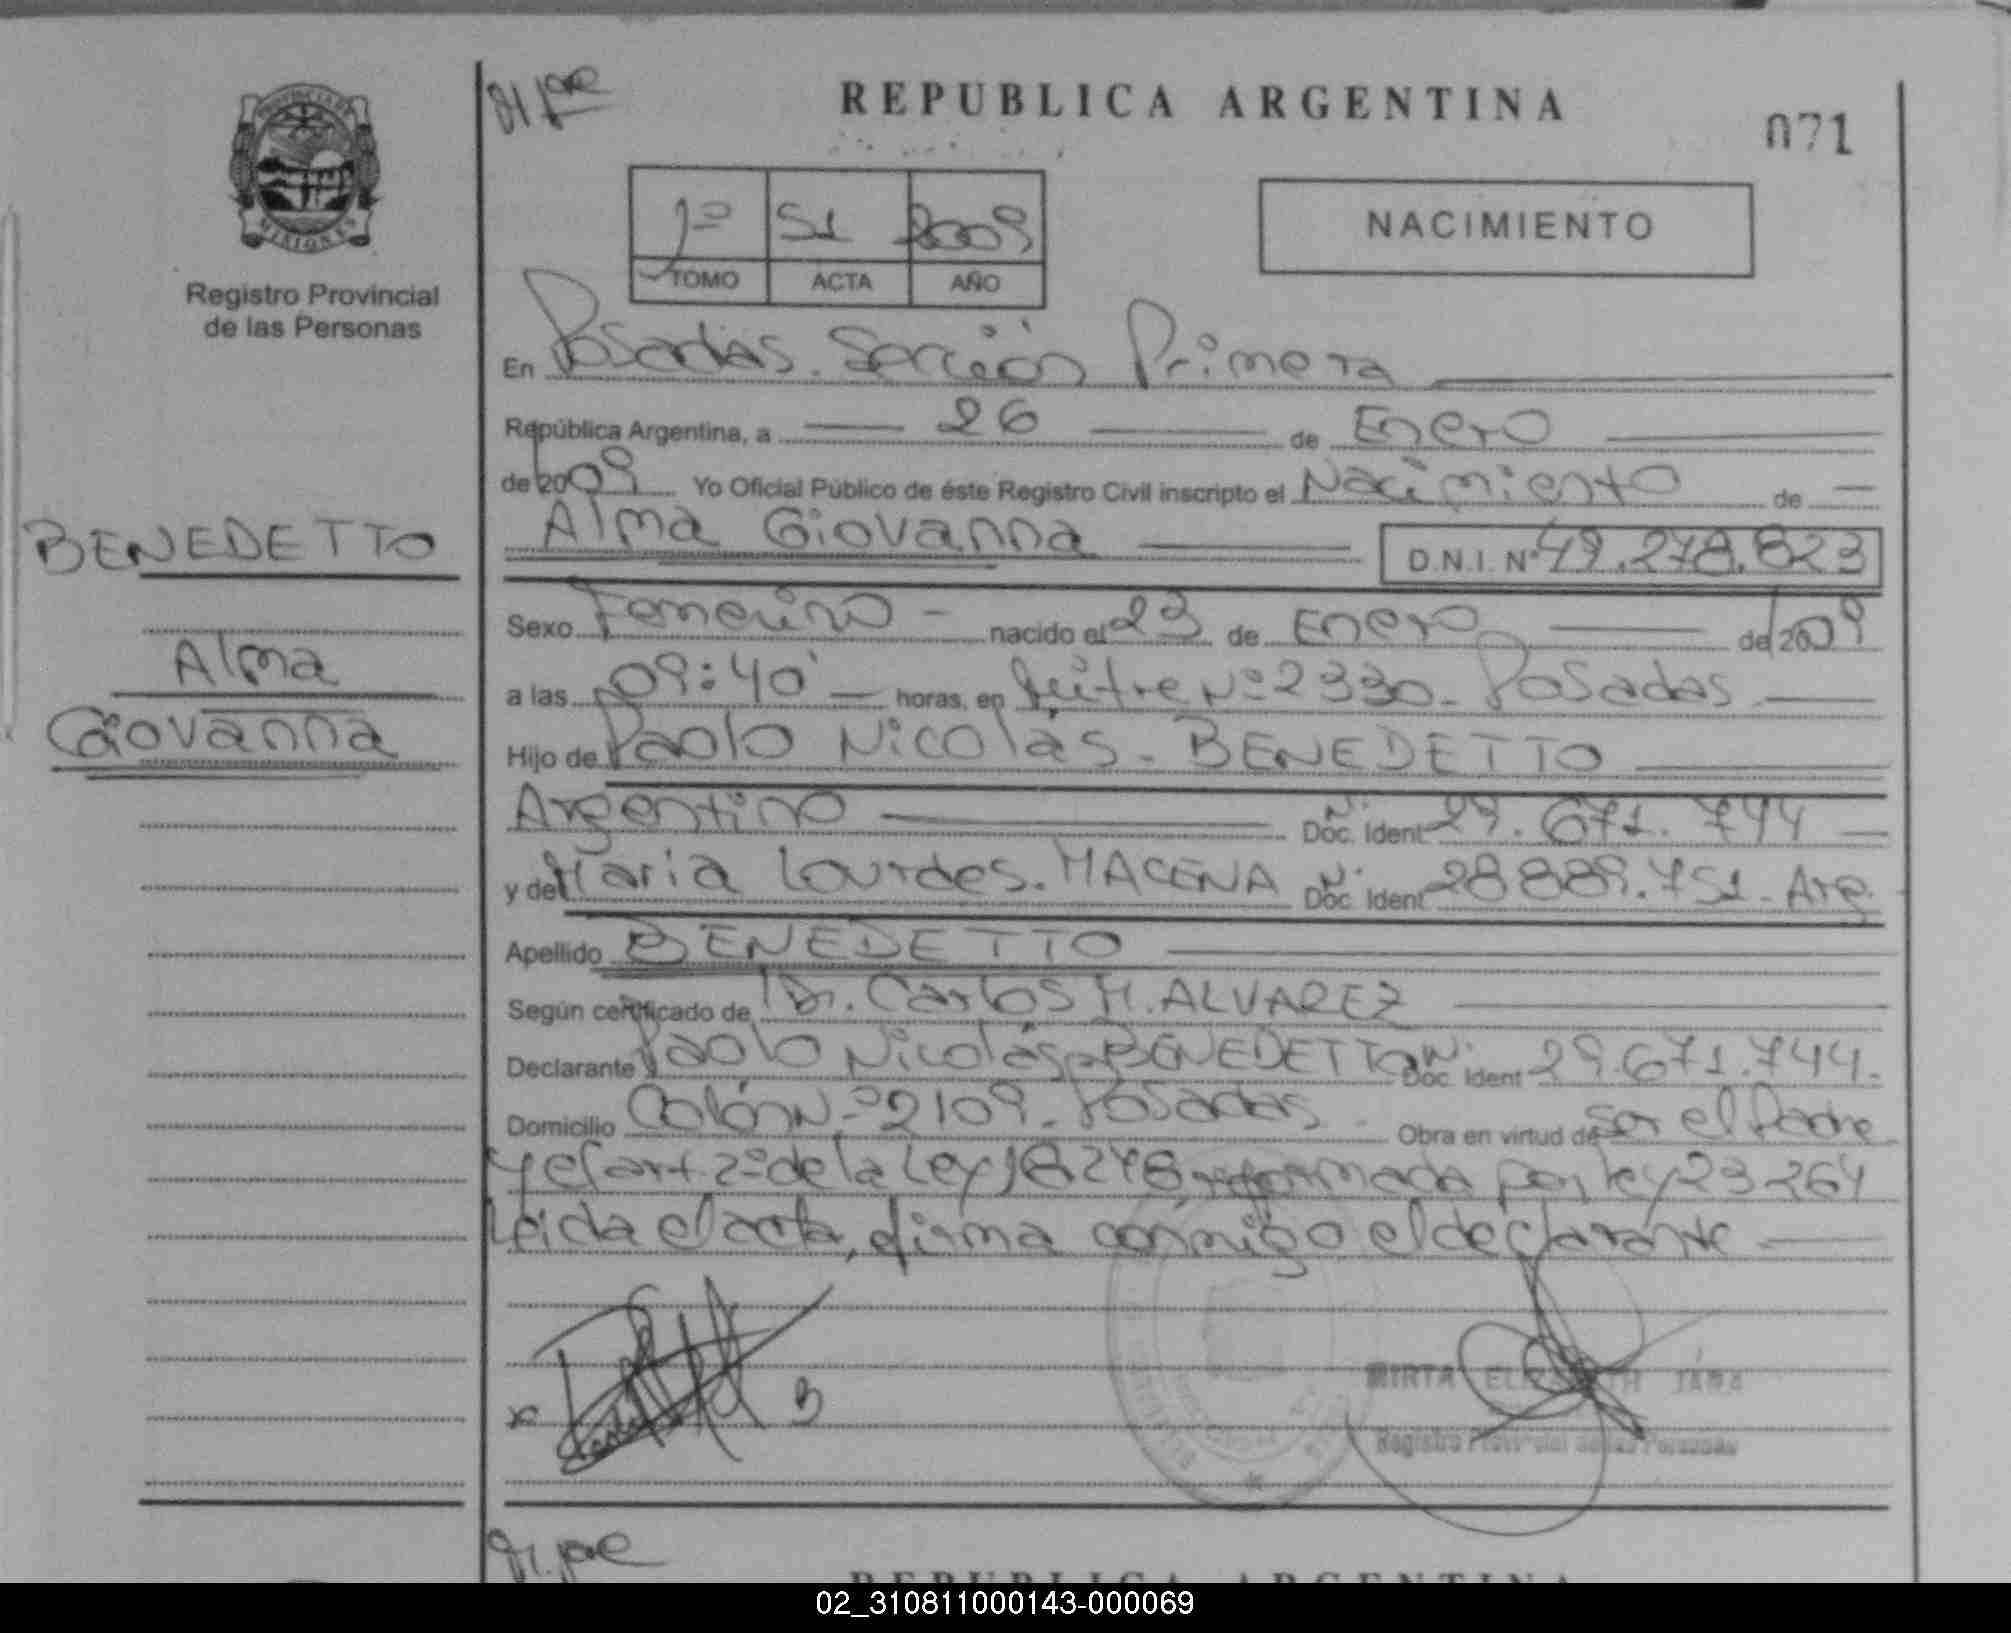 REPUBLICA ARGENTINA
071
PROVINCIA DE
MISIONES
Registro Provincial
de las Personas
1º 51 2009
TOMO ACTA AÑO
NACIMIENTO
En Posadas. Sección Primera
República Argentina, a 26 de Enero
de 2009 Yo Oficial Público de éste Registro Civil inscripto el Nacimiento de
Alma Giovanna D.N.I. Nº 49.278.823
BENEDETTO
Alma
Giovanna
Sexo Femenino - nacido el 23 de Enero de 2009
a las 09:40' horas, en Nº 2330 - Posadas
Hijo de Paolo Nicolás - BENEDETTO
Argentino Nº Doc. Ident 29.671.744
y de Maria Lourdes. MACENA Nº Doc. Ident 28889.751 - Arg.
Apellido BENEDETTO
Según certificado de Dr. Carlos M. ALVAREZ
Declarante Paolo Nicolás - BENEDETTO Nº Doc. Ident 29.671.744.
Domicilio Colón Nº 2109 - Posadas - Obra en virtud de ser el Padre
y el art 2º de la Ley 18248 reformada por ley 23264
Leida el acta, firma conmigo el declarante
B
MIRTA ELIZABETH JARA
Registro Provincial de las Personas
REPUBLICA ARGENTINA
02_310811000143-000069